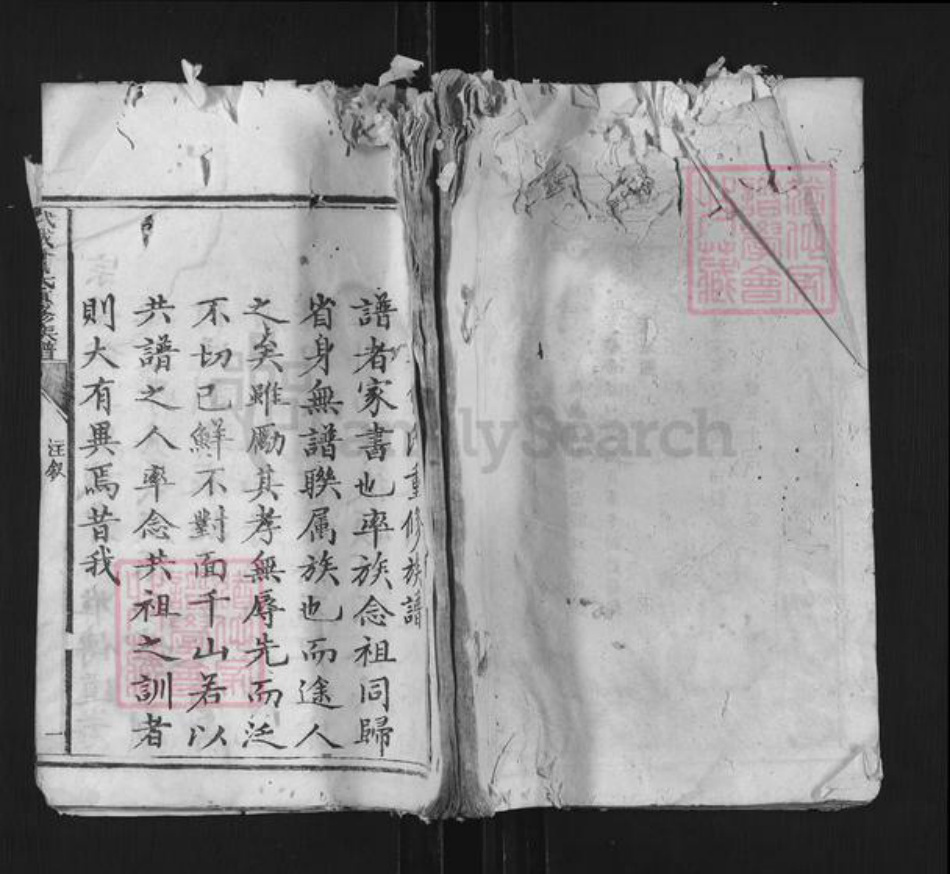 重修族譜
譜者家書也率族念祖同歸
省身無譜聯属族也而途人
之矣雖勵其孝無辱先而泛
不切已鮮不對面千山若以
共譜之人率念共祖之訓者
則大有異焉昔我
汪叙
一
FamilySearch